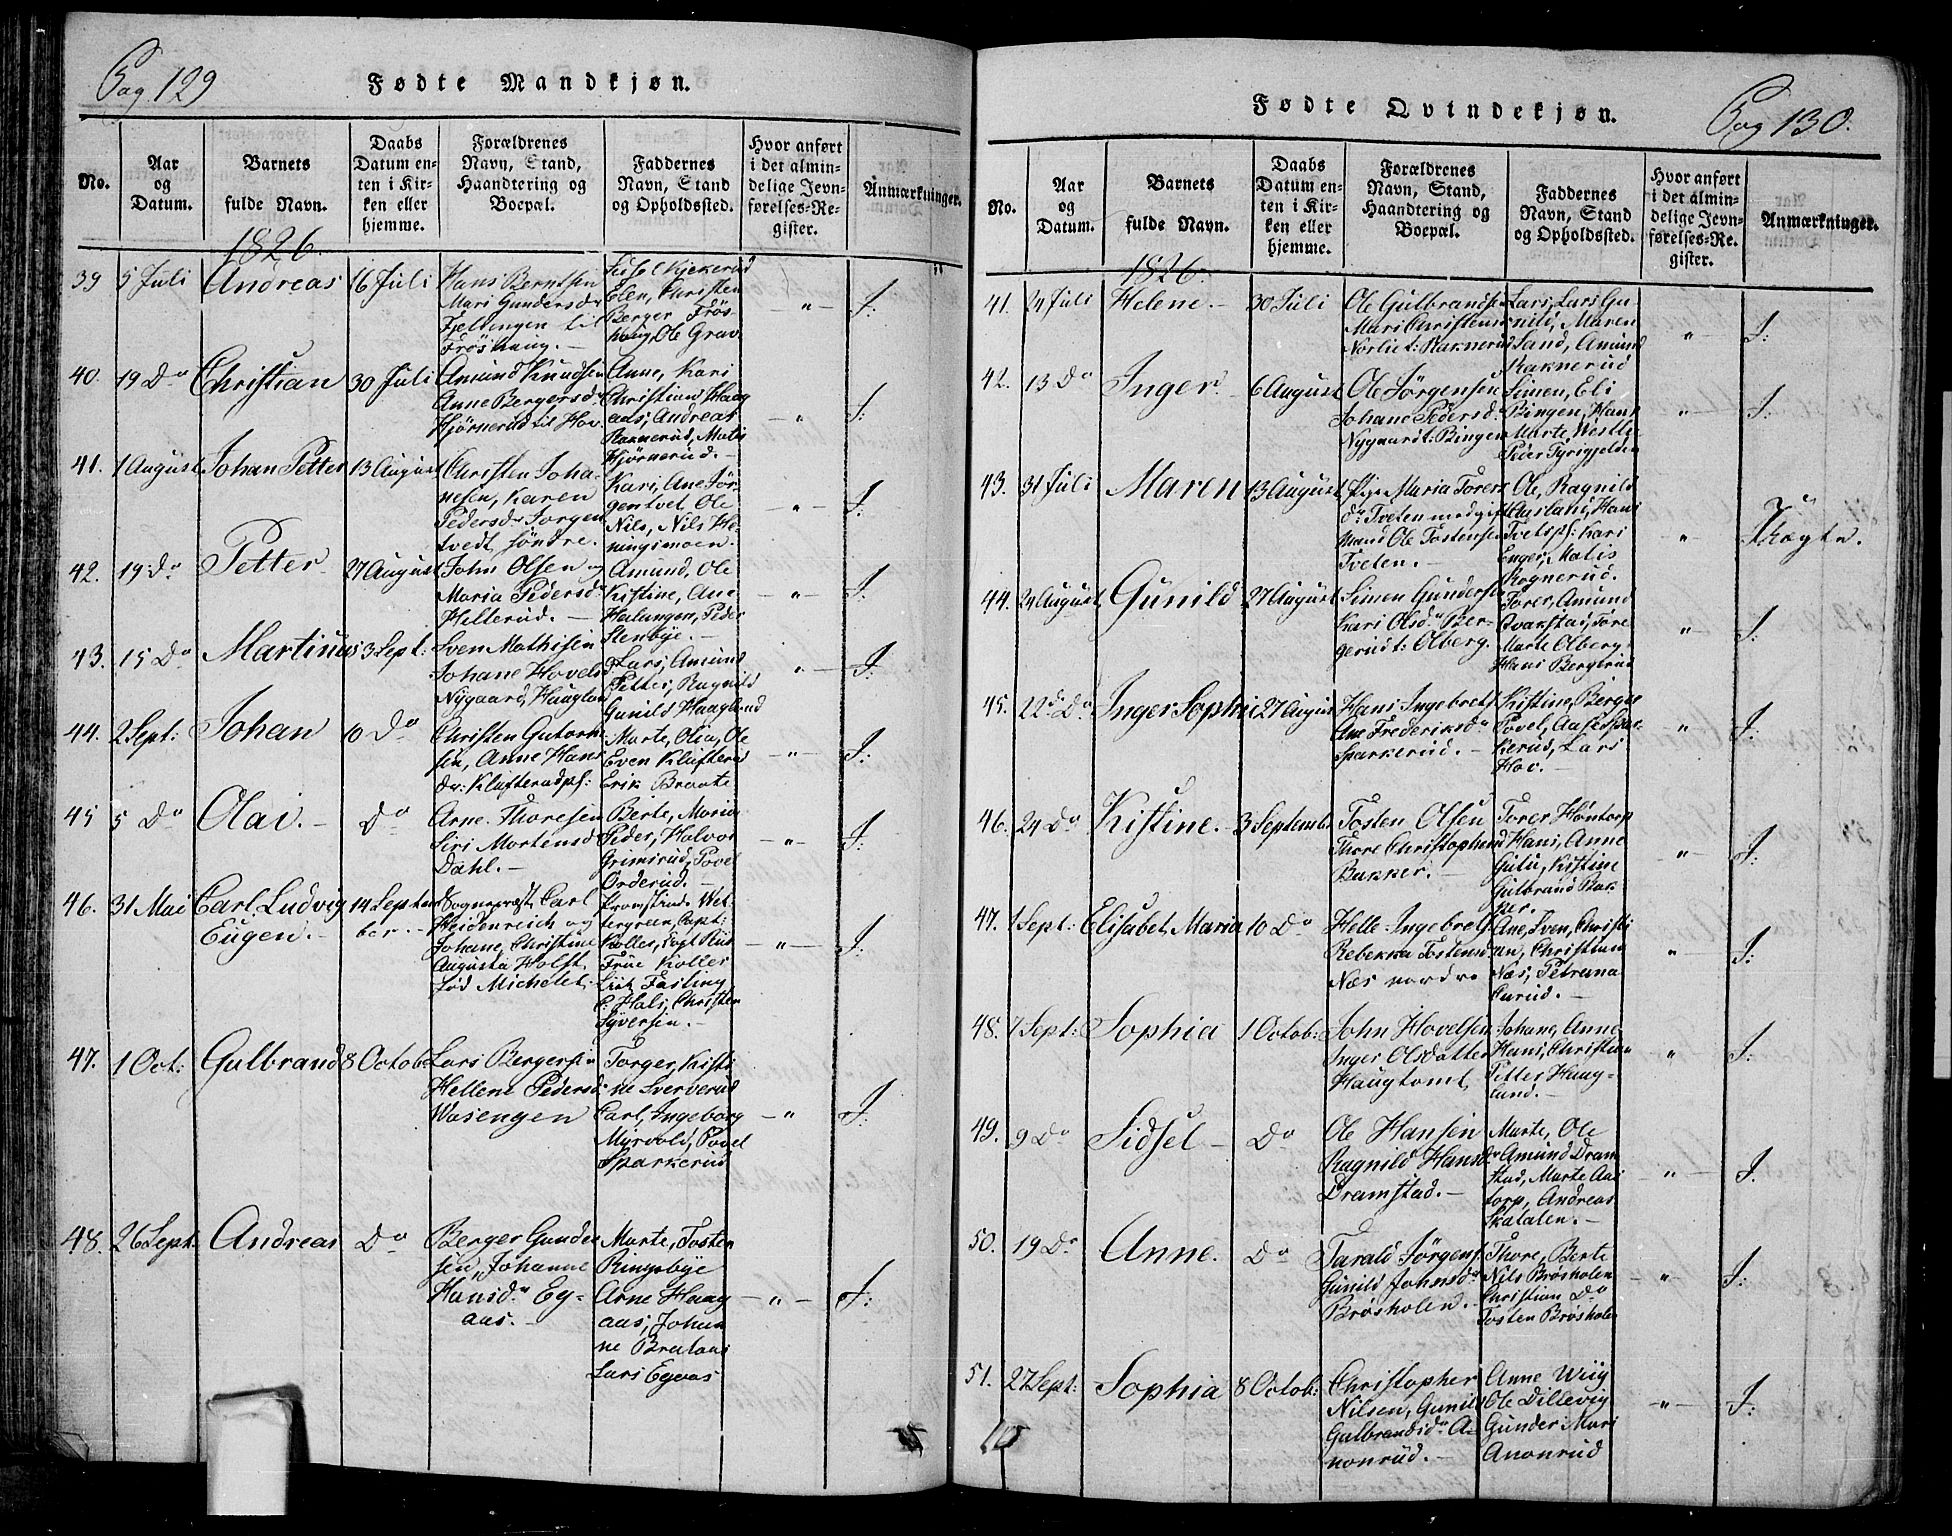 Pag 129
Fødte Mandkjøn.
No.
Aar
og
Datum.
Barnets
fulde Navn.
Daabs
Datum en-
ten i Kir-
ken eller
hjemme.
Forældrenes
Navn, Stand,
Haandtering og
Boepæl.
Faddernes
Navn, Stand
og Opholdssted.
Hvor anført
i det almin-
delige Jevn-
førelses-Re-
gister.
Anmærkninger.
1826.
39 5 Juli Andreas 16 Juli
Hans Berntsen
Mari Gundersdr
Fjellengen til
Frøshaug.
Kjekerud
Elen, Christen
Berger Frøs-
houg, Ole Grav
" I:
40. 19 Do Christian 30 Juli
Amund Knudsen
Anne Bergersd.
Hjørnerud til Hov.
Anne, Kari
Christian Haag
aas, Andreas
Raknerud, Matis
Hjørnerud.
" I:
41. 1 August Johan Petter 13 August
Christen Joha-
nesen, Karen
Pedersdr Jørgen
tvedt søndre.
Kari, Ane Jør-
gentvet Ole
Nils, Nils He-
ningsmoen.
" I:
42. 19 Do Petter 27 August
John Olsen og
Maria Pedersd.
Hellerud.
Amund, Ole
Kistine, Ane
Halungen, Peder
Stenbye.
" I:
43. 15 Do Martinus 3 Sept:
Sven Mathisen
Johane Hovelsd
Nygaard, Hauglun
Lars, Amund
Petter, Ragnild
Gunild Haaglund
" I:
44. 2 Sept: Johan 10 Do
Christen Gutorm
sen, Anne Hans
dr: Klufterudpl:
Marte, Olia, Ole
Even Klufterud
Erik Braate
" I:
45 5 Do Olai. Do
Arne Thoresen
Siri Mortensd
Dahl.
Berte, Maria
Peder, Halvor
Grimsrud, Povel
Orderud.
" I:
46. 31 Mai Carl Ludvig
Eugen.
14 Septem
ber.
Sognepræst Carl
Heidenreich og
Johane, Christine
Augusta Holst
fød Michelet.
Provstinde Wet-
tergreen, Capt:
Koller, Fogt Riis
Frue Koller
Liut Fasting
C: Hals, Christen
Syversen.
" I:
47. 1 Oct: Gulbrand 8 Octob:
Lars Bergersen
Hellene Pedersd:
Wasengen
Torger, Kisti
ne Sververud
Carl, Ingeborg
Myrvold, Povel
Sparkerud
" I:
48. 26 Sept: Andreas Do
Berger Gunder
sen, Johanne
Hansd. Eg-
aas.
Marte, Tosten
Ringsbye
Arne Haag
aas, Johan
ne Brataas
Lars Egaas
" I:
Pag 130.
Fødte Qvindekjøn.
No.
Aar
og
Datum.
Barnets
fulde Navn.
Daabs
Datum en-
ten i Kir-
ken eller
hjemme.
Forældrenes
Navn, Stand,
Haandtering og
Boepæl.
Faddernes
Navn, Stand
og Opholdssted.
Hvor anført
i det almin-
delige Jevn-
førelses-Re-
gister.
Anmærkninger.
1826.
41. 24 Juli Helene. 30 Juli
Ole Gulbrandsen
Mari Christens
Norlie t: Raknerud
Lars, Lars Gu
nild, Maren
Sand, Amund
Raknerud
" I:
42. 13 Do Inger 6 August
Ole Jørgensen
Johane Pedersd.
Nygaard t: Bingen
Simen, Eli
Bingen, Hans
Marte, Westli
Peder Tyrigjelden
" I:
43. 31 Juli Maren 13 August
Pige Maria Torers
dr Tveten med gift
Mand Ole Tostensen
Tveten.
Ole, Ragnild
Aasland, Hans
Tvetspl: Kari
Enger, Matis
Rognerud.
" Uægte.
44. 24 August Gunild 27 August
Simen Gunders
Kari Olsdr Ber-
gerud t: Olberg.
Torer, Amund
Qvakstad, Tore
Marte Olberg
Hans Bergerud
" I:
45. 22 Do Inger Sophi 27 August
Hans Ingebrets
Ane Frederiksdr
Sparkerud.
Kistine, Berge
Povel, Aase Spar
kerud, Lars
Hov.
" I:
46. 24 Do Kistine. 3 Septemb:
Tosten Olsen
Thore Christophersd
Bakker.
Torer Høntorp
Hans, Anne
Gulu, Kistine
Gulbrand Bak-
ker.
" I:
47. 1 Sept: Elisabet Maria 10 Do
Helle Ingebrets
Rebekka Tostensd
Næs nordre
Ane, Sven, Christi
an, Christian
Næs, Petruna
Curud.
" I:
48. 7 Sept: Sophia 1 Octob:
John Hovelsen
Inger Olsdatter
Haugtomt,
Johane, Anne
Hans, Christian
Petter Haag-
lund.
" I:
49. 9 Do Sidsel Do
Ole Hansen
Ragnild Hansdr
Dramstad.
Marte, Ole
Amund Dram
stad, Marte Aas
torp, Andreas
Skatalen.
" I.
50. 19 Do Anne. Do
Tarald Jørgens.
Gunild Johnsdr
Brøsholen.
Thore, Berte
Nils Brøsholen
Christian Do
Tosten Brøsholen
" I:
51. 27 Sept: Sophia 8 Octob:
Christopher
Nilsen, Gunild
Gulbrandsdr A-
nonrud.
Anne Wiig
Ole Dillevig
Gunder Mari
Anonrud
" I: